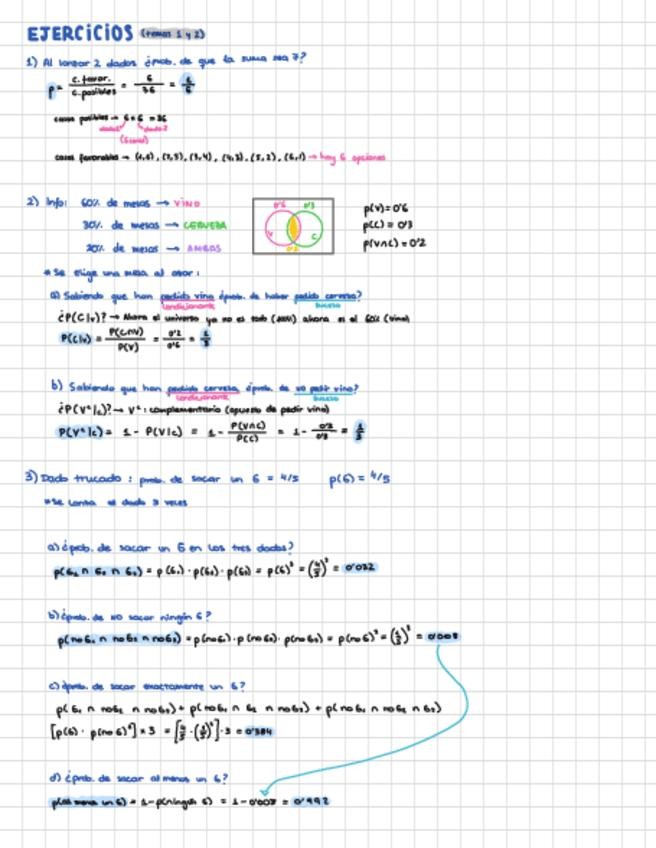 EJERCICIOS (temas 1 y 2)
1) Al lanzar 2 dados ¿prob. de que la suma sea 7?
p = c. favor. / c. posibles = 6 / 36 = 1/6
casos posibles → 6 × 6 = 36
dado 1 dado 2
casos favorables → (1,6), (2,5), (3,4), (4,3), (5,2), (6,1) → hay 6 opciones
2) Info: 60% de mesas → VINO
30% de mesas → CERVEZA
20% de mesas → AMBAS
0'6 0'3
V C
0'2
p(V) = 0'6
p(C) = 0'3
p(V∩C) = 0'2
* Se elige una mesa al azar:
a) Sabiendo que han pedido vino ¿prob. de haber pedido cerveza?
condicionante suceso
¿P(C|V)? → Ahora el universo ya no es todo (100%) ahora es el 60% (vino)
P(C|V) = P(C∩V) / P(V) = 0'2 / 0'6 = 1/3
b) Sabiendo que han pedido cerveza, ¿prob. de no pedir vino?
condicionante suceso
¿P(Vᶜ|C)? → Vᶜ: complementario (opuesto de pedir vino)
P(Vᶜ|C) = 1 - P(V|C) = 1 - P(V∩C) / P(C) = 1 - 0'2 / 0'3 = 1/3
3) Dado trucado: prob. de sacar un 6 = 4/5 p(6) = 4/5
* Se lanza el dado 3 veces
a) ¿prob. de sacar un 6 en los tres dados?
p(6₁ ∩ 6₂ ∩ 6₃) = p(6₁) · p(6₂) · p(6₃) = p(6)³ = (4/5)³ = 0'032
b) ¿prob. de NO sacar ningún 6?
p(no6₁ ∩ no6₂ ∩ no6₃) = p(no6₁) · p(no6₂) · p(no6₃) = p(no6)³ = (1/5)³ = 0'008
c) ¿prob. de sacar exactamente un 6?
p(6₁ ∩ no6₂ ∩ no6₃) + p(no6₁ ∩ 6₂ ∩ no6₃) + p(no6₁ ∩ no6₂ ∩ 6₃)
[p(6) · p(no6)²] × 3 = [4/5 · (1/5)²] · 3 = 0'384
d) ¿prob. de sacar al menos un 6?
p(al menos un 6) = 1 - p(ningún 6) = 1 - 0'008 = 0'992